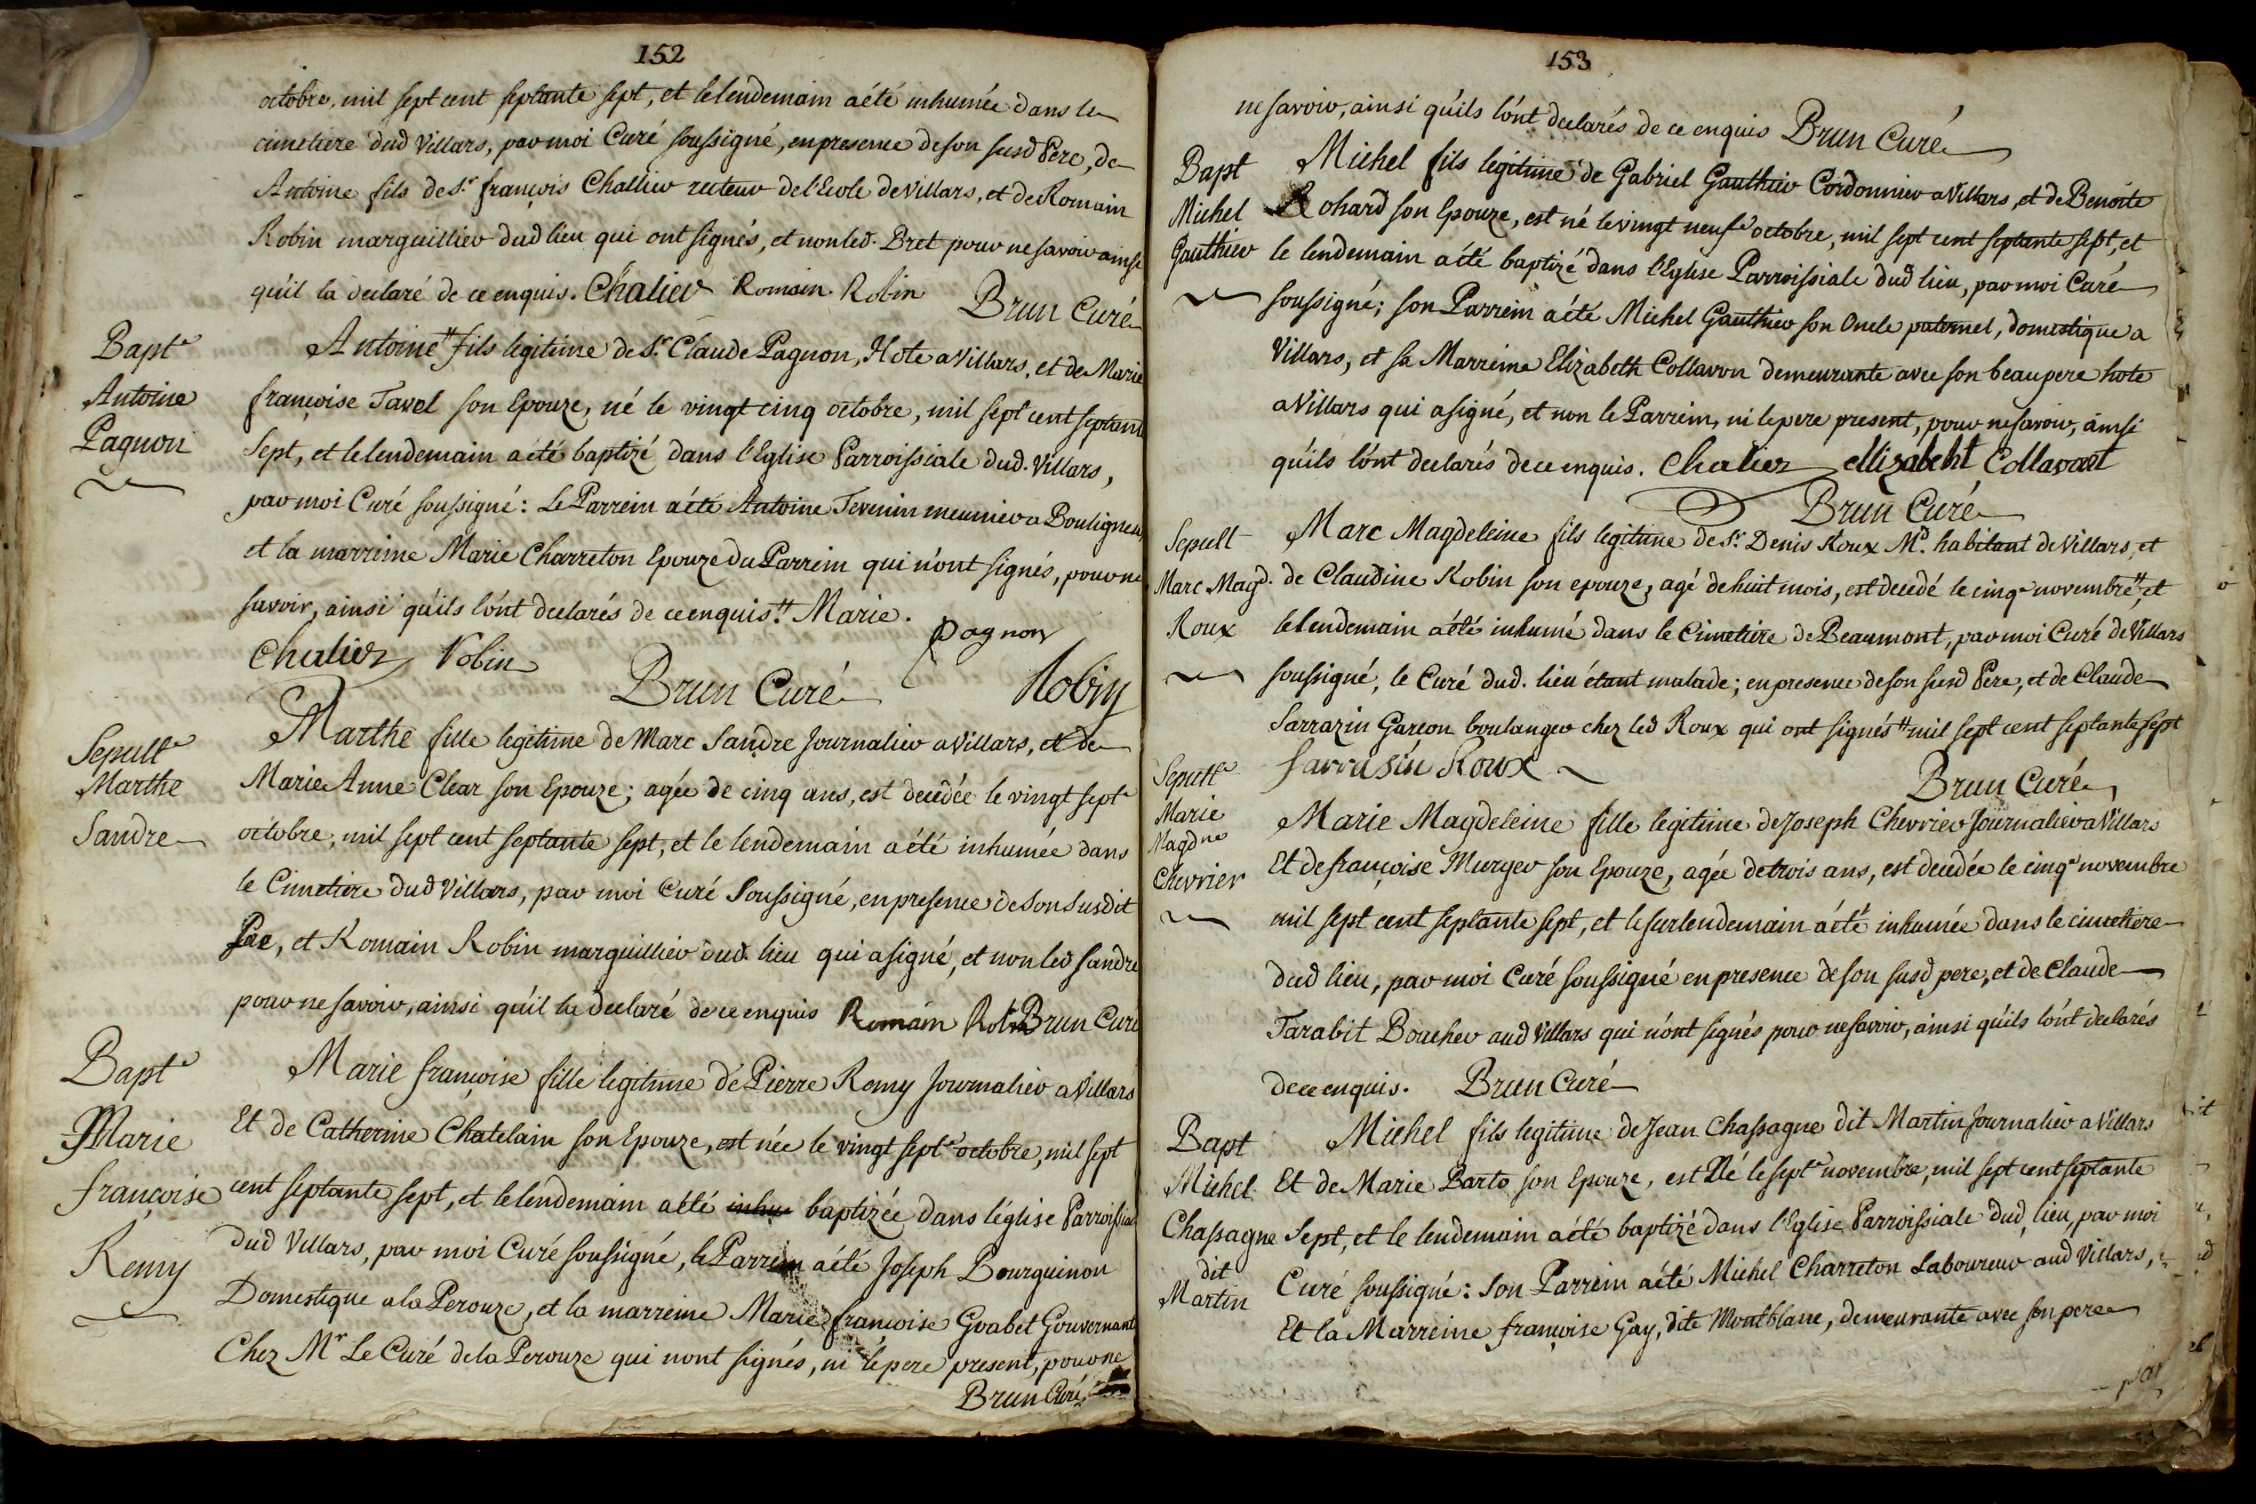 152
octobre, mil sept cent septante sept, et le lendemain a été inhumée dans le
cimetiere dud Villars, par moi Curé soussigné, en presence de son susd Pere, de
Antoine fils de Sr. françois Challier recteur de l'Ecole de Villars, et de Romain
Robin marguillier dud lieu qui ont signés, et non led. Bret pour ne savoir ainsi
qu'il la declaré de ce enquis. Chalier Romain Robin Brun Curé
Bapte
Antoine
Pagnon
Antoine" fils legitime de Sr. Claude Pagnon, Hote a Villars, et de Marie
françoise Tavel son Epouze, né le vingt cinq octobre, mil sept cent septante
Sept, et le lendemain a été baptizé dans l'Eglise Parroissiale dud. Villars,
par moi Curé soussigné: Le Parrein a été Antoine Tevenin meunier a Bouligneux
et la marreine Marie Charreton Epouze du Parrein qui n'ont signés, pour ne
savoir, ainsi qu'ils l'ont declarés de ce enquis." Marie.
Chalier Robin Pagnon
Brun Curé Robin
Sepulte
Marthe
Sandre
Marthe fille legitime de Marc Sandre Journalier a Villars, et de
Marie Anne Clear son Epouze; agée de cinq ans, est decedée le vingt sept
octobre, mil sept cent septante sept, et le lendemain a été inhumée dans
le Cimetiere dud Villars, par moi Curé Soussigné, en presence de son susdit
Pere, et Romain Robin marguillier dud. lieu qui a signé, et non led Sandre
pour ne savoir, ainsi qu'il la declaré de ce enquis Romain Robin Brun Curé
Bapte
Marie
françoise
Remy
Marie françoise fille legitime de Pierre Remy Journalier a Villars
Et de Catherine Chatelain son Epouze, est née le vingt septe octobre, mil sept
cent septante sept, et le lendemain a été inhu baptizée dans l'église Parroissiale
dud Villars, par moi Curé soussigné, le Parrein a été Joseph Bourguinon
Domestique a la Perouze, et la marreine Marie françoise Goabet Gouvernante
Chez Mr Le Curé de la Perouze qui n'ont signés, ni le pere present, pour ne
Brun Curé
153
ne savoir, ainsi qu'ils l'ont declarés de ce enquis Brun Curé
Bapt
Michel
Gauthier
Michel fils legitime de Gabriel Gauthier Cordonnier a Villars, et de Benoite
Rohard son Epouze, est né le vingt neufe octobre, mil sept cent septante sept, et
le lendemain a été baptizé dans l'Eglise Parroissiale dud lieu, par moi Curé
soussigné; son Parrein a été Michel Gauthier son Oncle paternel, domestique a
Villars, et sa Marreine Elizabeth Collavon demeurante avec son beau pere hote
a Villars qui a signé, et non le Parrein, ni le pere present, pour ne savoir, ainsi
qu'ils l'ont declarés de ce enquis. Chalier ellizabeht Collavont
Brun Curé
Sepult
Marc Magd.
Roux
Marc Magdeleine fils legitime de Sr. Denis Roux Md. habitant de Villars, et
de Claudine Robin son epouze, agé de huit mois, est decedé le cinqe novembre", et
le lendemain a été inhumé dans le Cimetiere de Beaumont, par moi Curé de Villars
soussigné, le Curé dud. lieu étant malade; en presence de son susd Pere, et de Claude
Sarrazin Garcon boulanger chez led Roux qui ont signés" mil sept cent septante sept
Sarrasin Roux
Brun Curé
Sepulte
Marie
Magdne
Chevrier
Marie Magdeleine fille legitime de Joseph Chevrier Journalier a Villars
Et de françoise Murger son Epouze, agée de trois ans, est decedée le cinqe novembre
mil sept cent septante sept, et le surlendemain a été inhumée dans le cimetiere
dud lieu, par moi Curé soussigné en presence de son susd pere, et de Claude
Tarabit Boucher aud Villars qui n'ont signés pour ne savoir, ainsi qu'ils l'ont declarés
de ce enquis. Brun Curé
Bapt
Michel
Chassagne
dit
Martin
Michel fils legitime de Jean Chassagne dit Martin Journalier a Villars
Et de Marie Barto son Epouze, est Né le septe novembre, mil sept cent septante
Sept, et le lendemain a été baptizé dans l'Eglise Parroissiale dud lieu, par moi
Curé soussigné: Son Parrein a été Michel Charreton Laboureur aud Villars,
Et la Marreine françoise Gay, dite Montblanc, demeurante avec son pere